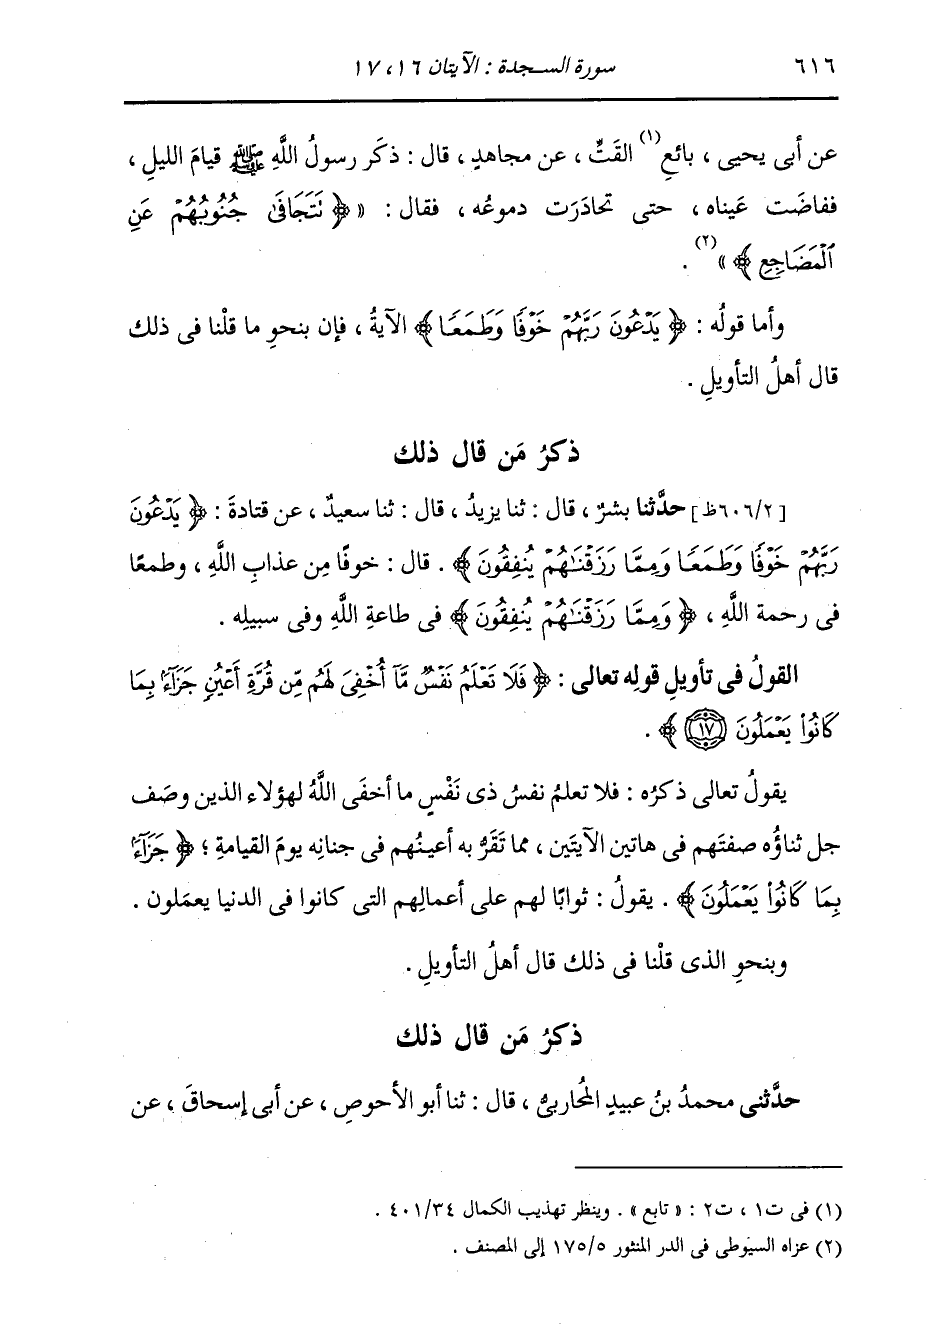 ٦١٦ سورة السجدة : الآيتان ١٦ ، ١٧
عن أبى يحيى ، بائعِ(١) القَتِّ ، عن مجاهدٍ ، قال : ذكَر رسولُ اللَّهِ ﷺ قيامَ الليلِ ،
ففاضَت عَيناه ، حتى تحادَرَت دموعُه ، فقال : « ﴿ نَتَجَافَىٰ جُنُوبُهُمْ عَنِ
ٱلْمَضَاجِعِ ﴾ »(٢) .
وأما قولُه : ﴿ يَدْعُونَ رَبَّهُمْ خَوْفًا وَطَمَعًا ﴾ الآيةُ ، فإن بنحوِ ما قلْنا فى ذلك
قال أهلُ التأويلِ .
ذكرُ مَن قال ذلك
[٦٠٦/٢ظ] حدَّثنا بشرٌ ، قال : ثنا يزيدُ ، قال : ثنا سعيدٌ ، عن قتادةَ : ﴿ يَدْعُونَ
رَبَّهُمْ خَوْفًا وَطَمَعًا وَمِمَّا رَزَقْنَـٰهُمْ يُنفِقُونَ ﴾ . قال : خوفًا مِن عذابِ اللَّهِ ، وطمعًا
فى رحمة اللَّهِ ، ﴿ وَمِمَّا رَزَقْنَـٰهُمْ يُنفِقُونَ ﴾ فى طاعةِ اللَّهِ وفى سبيلِه .
القولُ فى تأويلِ قولِه تعالى : ﴿ فَلَا تَعْلَمُ نَفْسٌ مَّآ أُخْفِىَ لَهُم مِّن قُرَّةِ أَعْيُنٍ جَزَآءًۢ بِمَا
كَانُوا۟ يَعْمَلُونَ ١٧ ﴾ .
يقولُ تعالى ذكرُه : فلا تعلمُ نفسُ ذى نَفْسٍ ما أخفَى اللَّهُ لهؤلاء الذين وصَف
جل ثناؤُه صفتَهم فى هاتين الآيتَين ، مما تَقَرُّ به أعينُهم فى جنانِه يومَ القيامةِ ؛ ﴿ جَزَآءًۢ
بِمَا كَانُوا۟ يَعْمَلُونَ ﴾ . يقولُ : ثوابًا لهم على أعمالِهم التى كانوا فى الدنيا يعمَلون .
وبنحوِ الذى قلْنا فى ذلك قال أهلُ التأويلِ .
ذكرُ مَن قال ذلك
حدَّثنى محمدُ بنُ عبيدٍ المُحاربىُّ ، قال : ثنا أبو الأحوصِ ، عن أبى إسحاقَ ، عن
(١) فى ت١ ، ت٢ : « تابع » . وينظر تهذيب الكمال ٤٠١/٣٤ .
(٢) عزاه السيوطى فى الدر المنثور ١٧٥/٥ إلى المصنف .